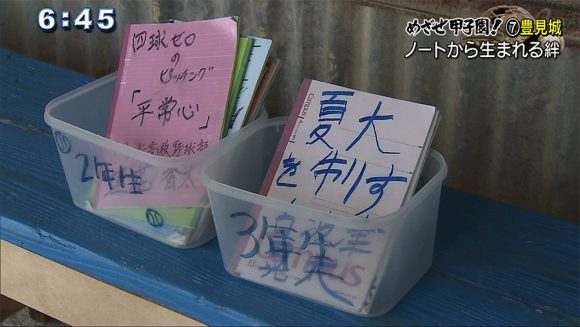 6:45
めざせ甲子園!⑦豊見城
ノートから生まれる絆
四球ゼロ
の
ピッチング
「平常心」
2年生
Campus
夏大
を制す
3年生
Campus